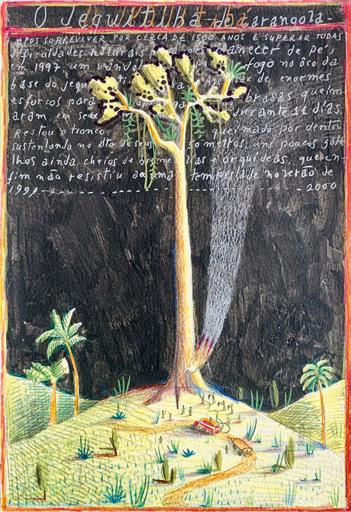 O Jequitibá de Carangola
APÓS SOBREVIVER POR CERCA DE 1500 ANOS E SUPERAR TODAS
dificuldades naturais para permanecer de pé,
em 1997, um vândalo fogo no ôco da
base do jequitibá de enormes
esforços para brasas queim
aram em seu durante 11 dias.
Restou o tronco queimado por dentro
sustentando no alto de seus 50 metros, uns poucos ga
lhos ainda cheios de bromélias e orquídeas, que en-
fim não resistiu a uma tempestade no verão de
1999 2000